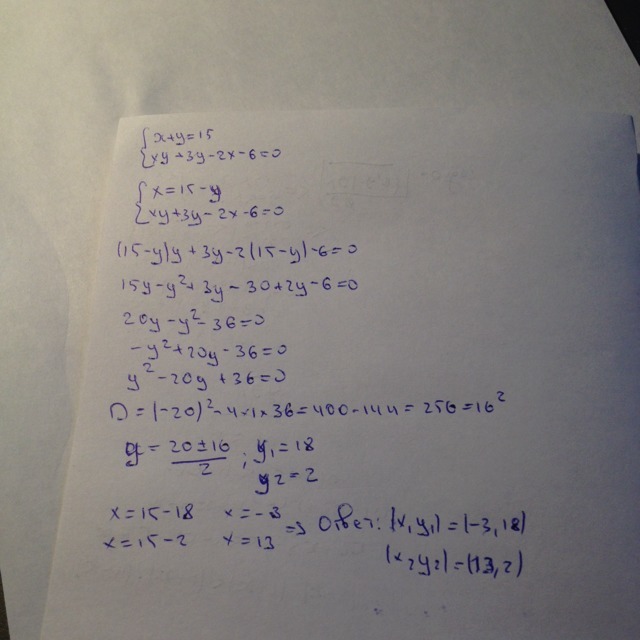 {x+y=15
{xy+3y-2x-6=0
{x=15-y
{xy+3y-2x-6=0
(15-y)y+3y-2(15-y)-6=0
15y-y²+3y-30+2y-6=0
20y-y²-36=0
-y²+20y-36=0
y²-20y+36=0
D=(-20)²-4×1×36=400-144=256=16²
y=20±16/2; y₁=18
y₂=2
x=15-18 x=-3
x=15-2 x=13 => Ответ: (x₁y₁)=(-3,18)
(x₂y₂)=(13,2)